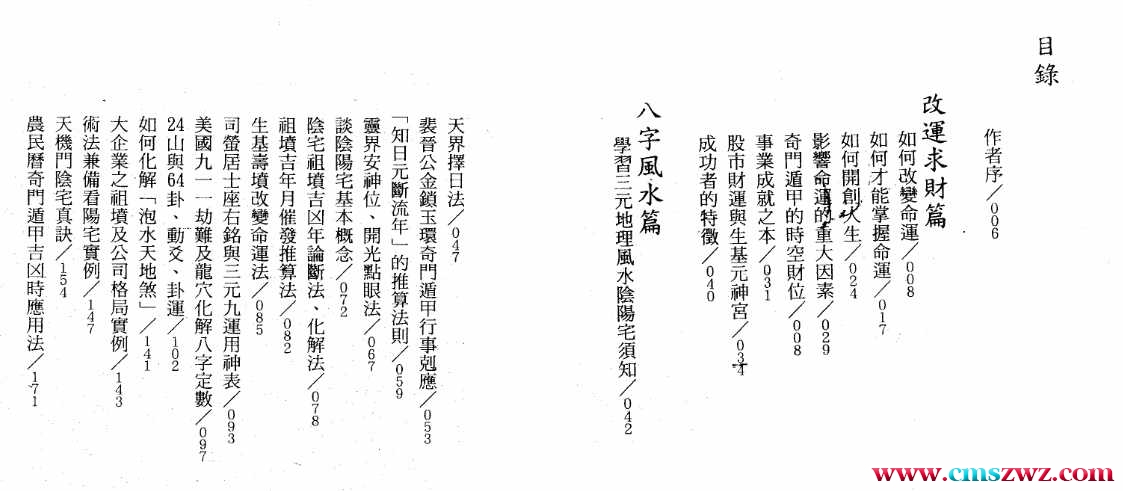 目錄
作者序／006
改運求財篇
如何改變命運／008
如何才能掌握命運／017
如何開創人生／024
影響命運的重大因素／029
奇門遁甲的時空財位／008
事業成就之本／031
股市財運與生基元神宮／034
成功者的特徵／040
八字風水篇
學習三元地理風水陰陽宅須知／042
天界擇日法／047
裴晉公金鎖玉環奇門遁甲行事剋應／053
「知日元斷流年」的推算法則／059
靈界安神位、開光點眼法／067
談陰陽宅基本概念／072
陰宅祖墳吉凶年論斷法、化解法／078
祖墳吉年月催發推算法／082
生基壽墳改變命運法／085
司螢居士座右銘與三元九運用神表／093
美國九一一劫難及龍穴化解八字定數／097
24山與64卦、動爻、卦運／102
如何化解「泡水天地煞」／141
大企業之祖墳及公司格局實例／143
術法兼備看陽宅實例／147
天機門陰宅真訣／154
農民曆奇門遁甲吉凶時應用法／171
www.cmszwz.com